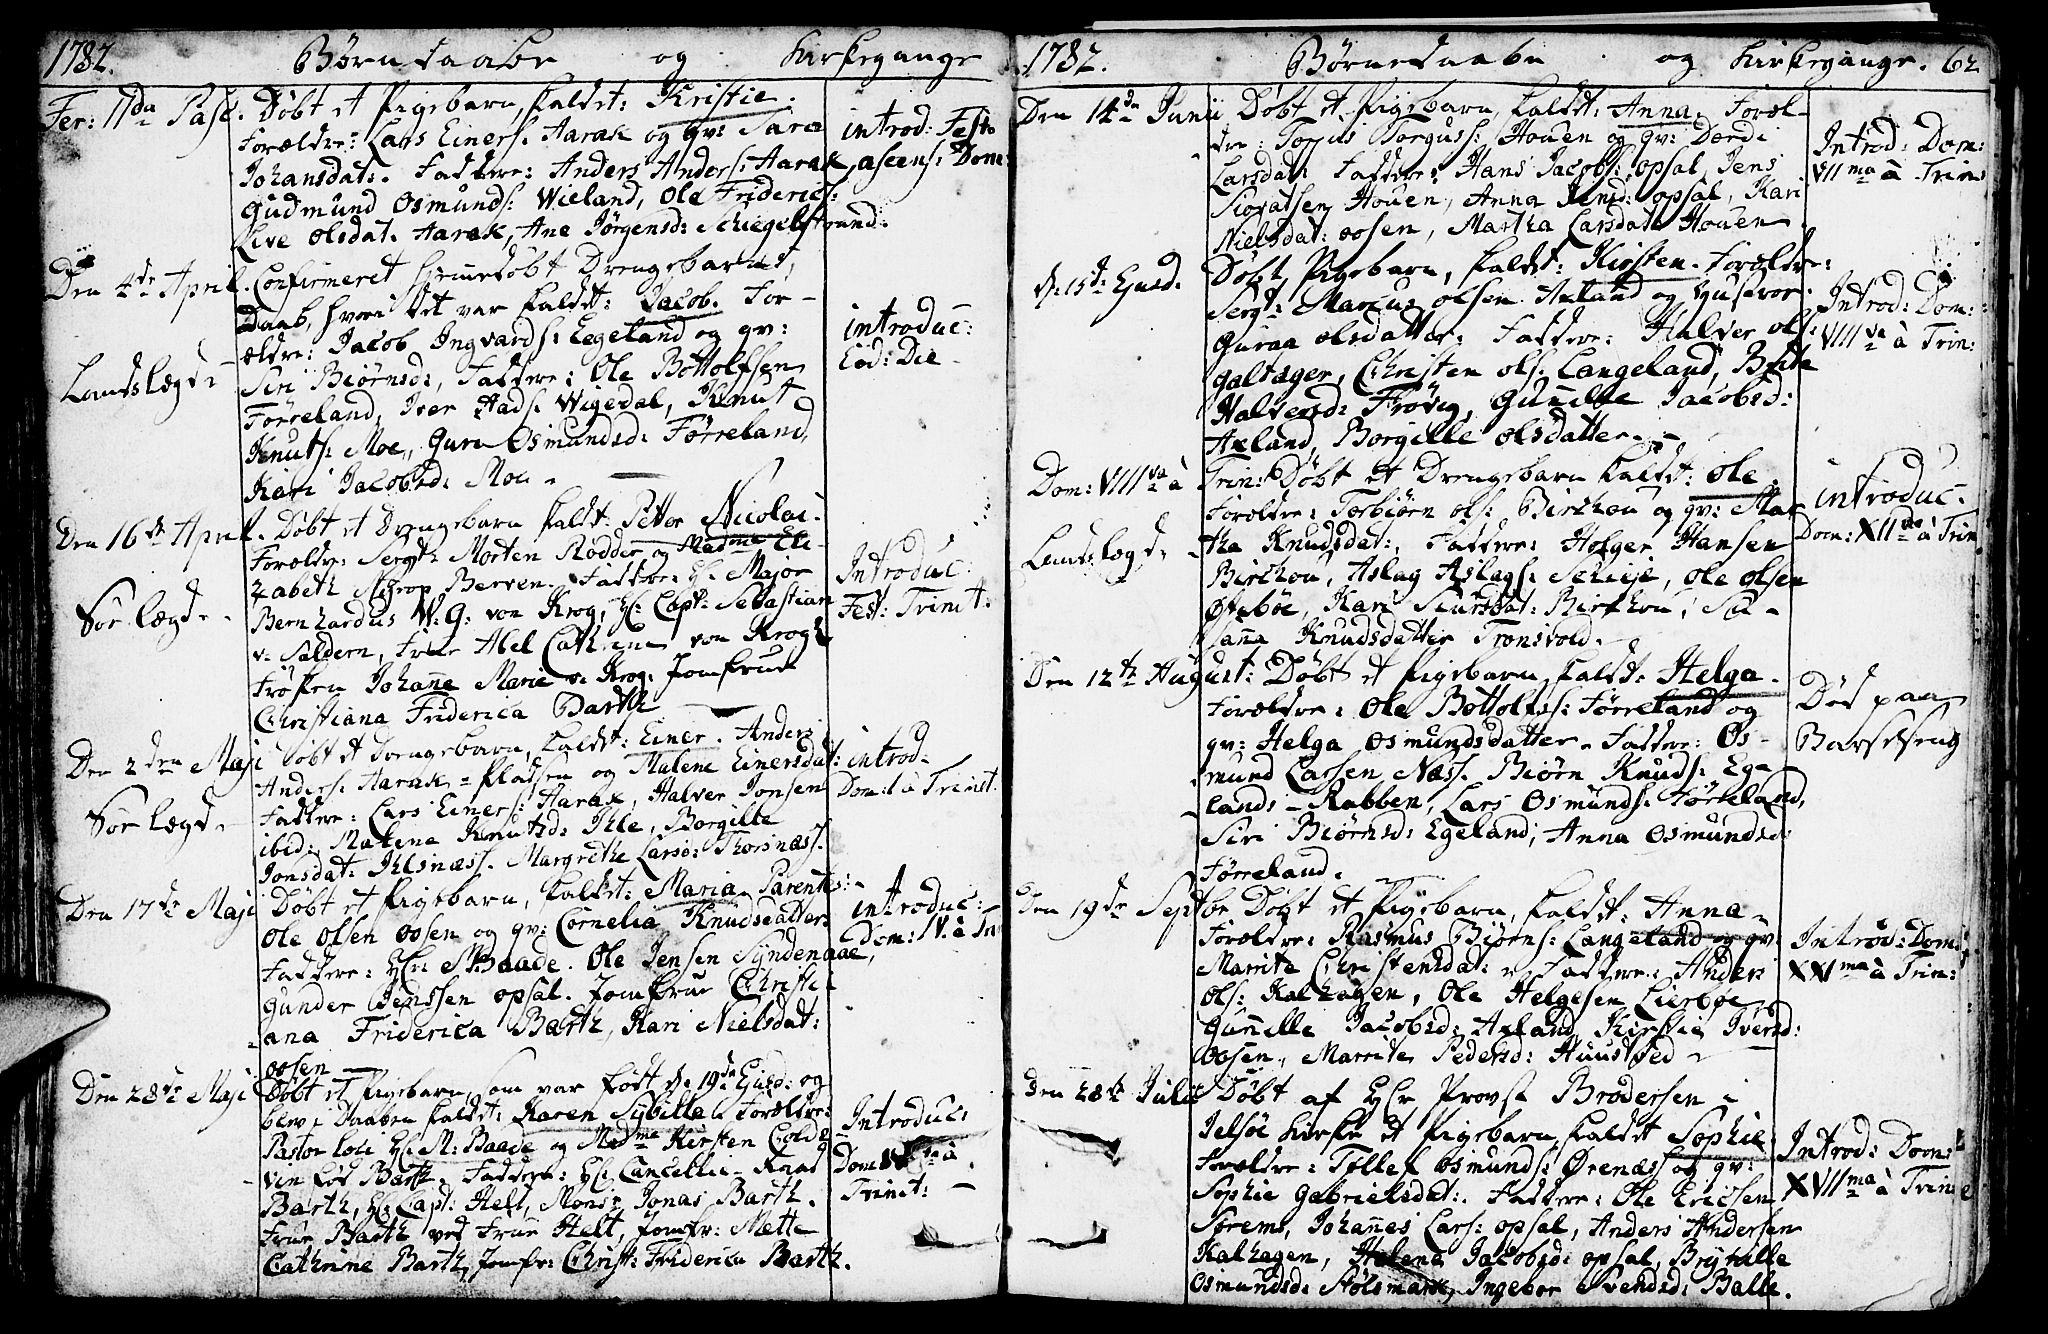 1782. Børnedaabe og Kirkegange
Fer: IIda Pasc. Døbt et Pigebarn, kaldet: Kristie.
Forældre: Lars Einers: Aarak og qv: Sara
Johansdat:. Faddere: Anders Anders: Aarak,
Gudmund Osmunds: Wieland, Ole Friderics:
Live Olsdat: Aarak, Ane Jørgensd: Schiegelstrand.
introd: Festo
ascens: Dom:
Den 4de April. Confirmeret hjemmedøbt Drengebarns
Daab, hvori det var kaldet: Jacob. For-
ældre: Jacob Ingvards: Egeland og qv:
Siri Biørnsd:, Faddere: Ole Bottolfsen
Førreland, Iver Hads: Wigedal, Knut
Knuts: Moe, Guru Osmundsd: Førreland,
Kari Jacobsd: Moe.
Landslægd
introduc:
Eod: Die
Den 16de April. Døbt et Drengebarn kaldt: Petter Nicolai.
Forældr: Sergth Morten Rødder og Madme Eli-
zabeth Strop Berven. Faddere: Hr Major
Bernhardus W. G. von Krog, Hr: Capt: Sebastian
v. Saldern, Frue Abel Cathrine von Krogh
Frøken Johanne Marie v. Krog. Jomfrue
Christiana Friderica Barth
Sør lægd
Introduc:
Fest: Trinit:
Den 2den Maji Døbt et Drengebarn, kaldet: Einer. Anders
Anders: Aarak-Pladsen og Malene Einersdat:
Faddere: Lars Einers: Aarak, Halver Jonsen
ibid:, Malena Knutsd: Ihle, Borgille
Jonsdat: Ihlsnæss. Margrethe Larsd: Thorsnæss.
Sør lægd
introd:
Dom: I à Trinit:
Den 17de Maji Døbt et Pigebarn, kaldet: Maria. Parentes:
Ole Olsen Oosen og qv: Cornelia Knudsdatter
Faddere: Hr: M. Baade. Ole Jensen Syndenaae,
Gunder Jenssen Opsal. Jomfrue Christi-
ana Friderica Barth, Kari Nielsdat:
Oosen
introduc:
Dom: IV. à Tri
Den 28de Maji Døbt et Pigebarn, som var født d: 19de Ejusd: og
blev i Daaben kaldet: Karen Sybilla. Forældre:
Pastor loci Hr. M: Baade og Madme Kirsten Cold-
vin fød Barth. Faddere: Hr: Cancellie-Raad
Barth, Hr: Capt: Helt, Monsr Jonas Barth.
Frue Barth ved Frue Helt, Jomfr: Mette
Cathrine Barth, Jomfr: Christ: Friderica Barth.
Introduc:
Dom: à
Trinit:
1782. Børnedaabe og Kirkegange. 62
Den 14de Junii Døbt et Pigebarn kaldet: Anna. Foræl-
dre: Torgus: Houen og qv: Dordi
Larsdat: Faddere: Hans Jacobs: Opsal, Jens
Siovatsen Houen, Anna Jensd: Opsal, Kari
Nielsdat: Oosen, Martha Larsdat: Houen
Introd: Dom:
VIIma à Trin:
d: 15de Ejusd. Døbt Pigebarn, kaldet: Kirsten. Forældre:
Sergt: Marcus Olsen Axland og Hustroe:
Guraa Olsdatter: Faddere: Halver Ols:
Galtager, Christen Ols: Langeland, Brite
Halversd: Frøvig, Gunilde Jacobsd:
Axland, Borgille Olsdatter.
Introd: Dom:
VIIIva à Trin:
Dom: VIIIva à Trin: Døbt et Drengebarn kaldet: Ole.
Forældre: Torbiørn Ols: Birkhou og qv: Mar-
tha Knudsdat:, Faddere: Holger Hansen
Birchou, Aslag Aslags: Schieje, Ole Olsen
Østebøe, Kari Siursdat: Birkhou, Su-
sanna Knudsdatter Tronsvold.
Landslægd
introduc.
Dom: XIIda à Trin
Den 12te August: Døbt et Pigebarn kaldt: Helga.
Forældre: Ole Bottolfs: Førreland og
qv: Helga Osmundsdatter. Faddere: Os-
mund Larsen Næss. Biørn Knuds: Ege-
lands-Rabben, Lars Osmunds: Førreland,
Siri Biørnsd: Egeland, Anna Osmundsd:
Førreland.
Død paa
Barselseng
Den 19de Septbr Døbt et Pigebarn, kaldet: Anna.
Forældre: Rasmus Biørns: Langeland og qv:
Marrite Christensdat: Faddere: Anders
Ols: Kalhagen, Ole Helgesen Lierbøe
Gunnille Jacobsd: Axland, Kirstie Iversd:
Oosen, Marrite Pedersd: Huustved
Introd: Dom:
XXIma à Trin:
Den 28de Julii Døbt af Hr Provst Brodersen i
Jelsøe Kirke et Pigebarn kaldet Sophie.
Forældre: Tollef Osmunds: Ørenæs og qv:
Sophie Gabrielsdat:. Faddere: Ole Ericsen
Sørems, Johannes Lars: Opsal, Anders Andersen
Kalhagen, Helena Jacobsd: Opsal, Brynille
Osmundsd: Hølsmark, Ingebor Svendsd: Balle.
Introd: Dom:
XVIIma à Trin